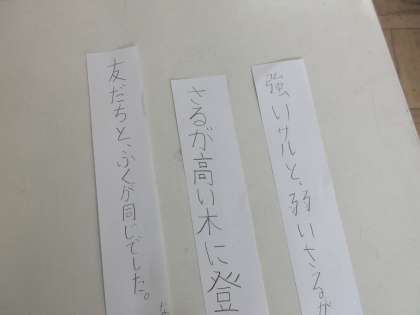 強いサルと、弱いさるが
さるが高い木に登
友だちと、ふくが同じでした。